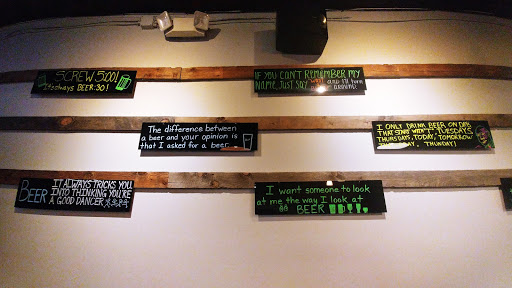 SCREW 5:00!
It's always BEER:30!
IF YOU CAN'T REMEMBER MY
NAME, JUST SAY
AND I'LL TURN
AROUND.
The difference between
a beer and your opinion is
that I asked for a beer.
I ONLY DRINK BEER ON DAYS
THAT START WITH "T". TUESDAYS,
THURSDAYS, TODAY, TOMORROW
DAY, THUNDAY!
BEER
IT ALWAYS TRICKS YOU
INTO THINKING YOU'RE
A GOOD DANCER
I want someone to look
at me the way I look at
BEER